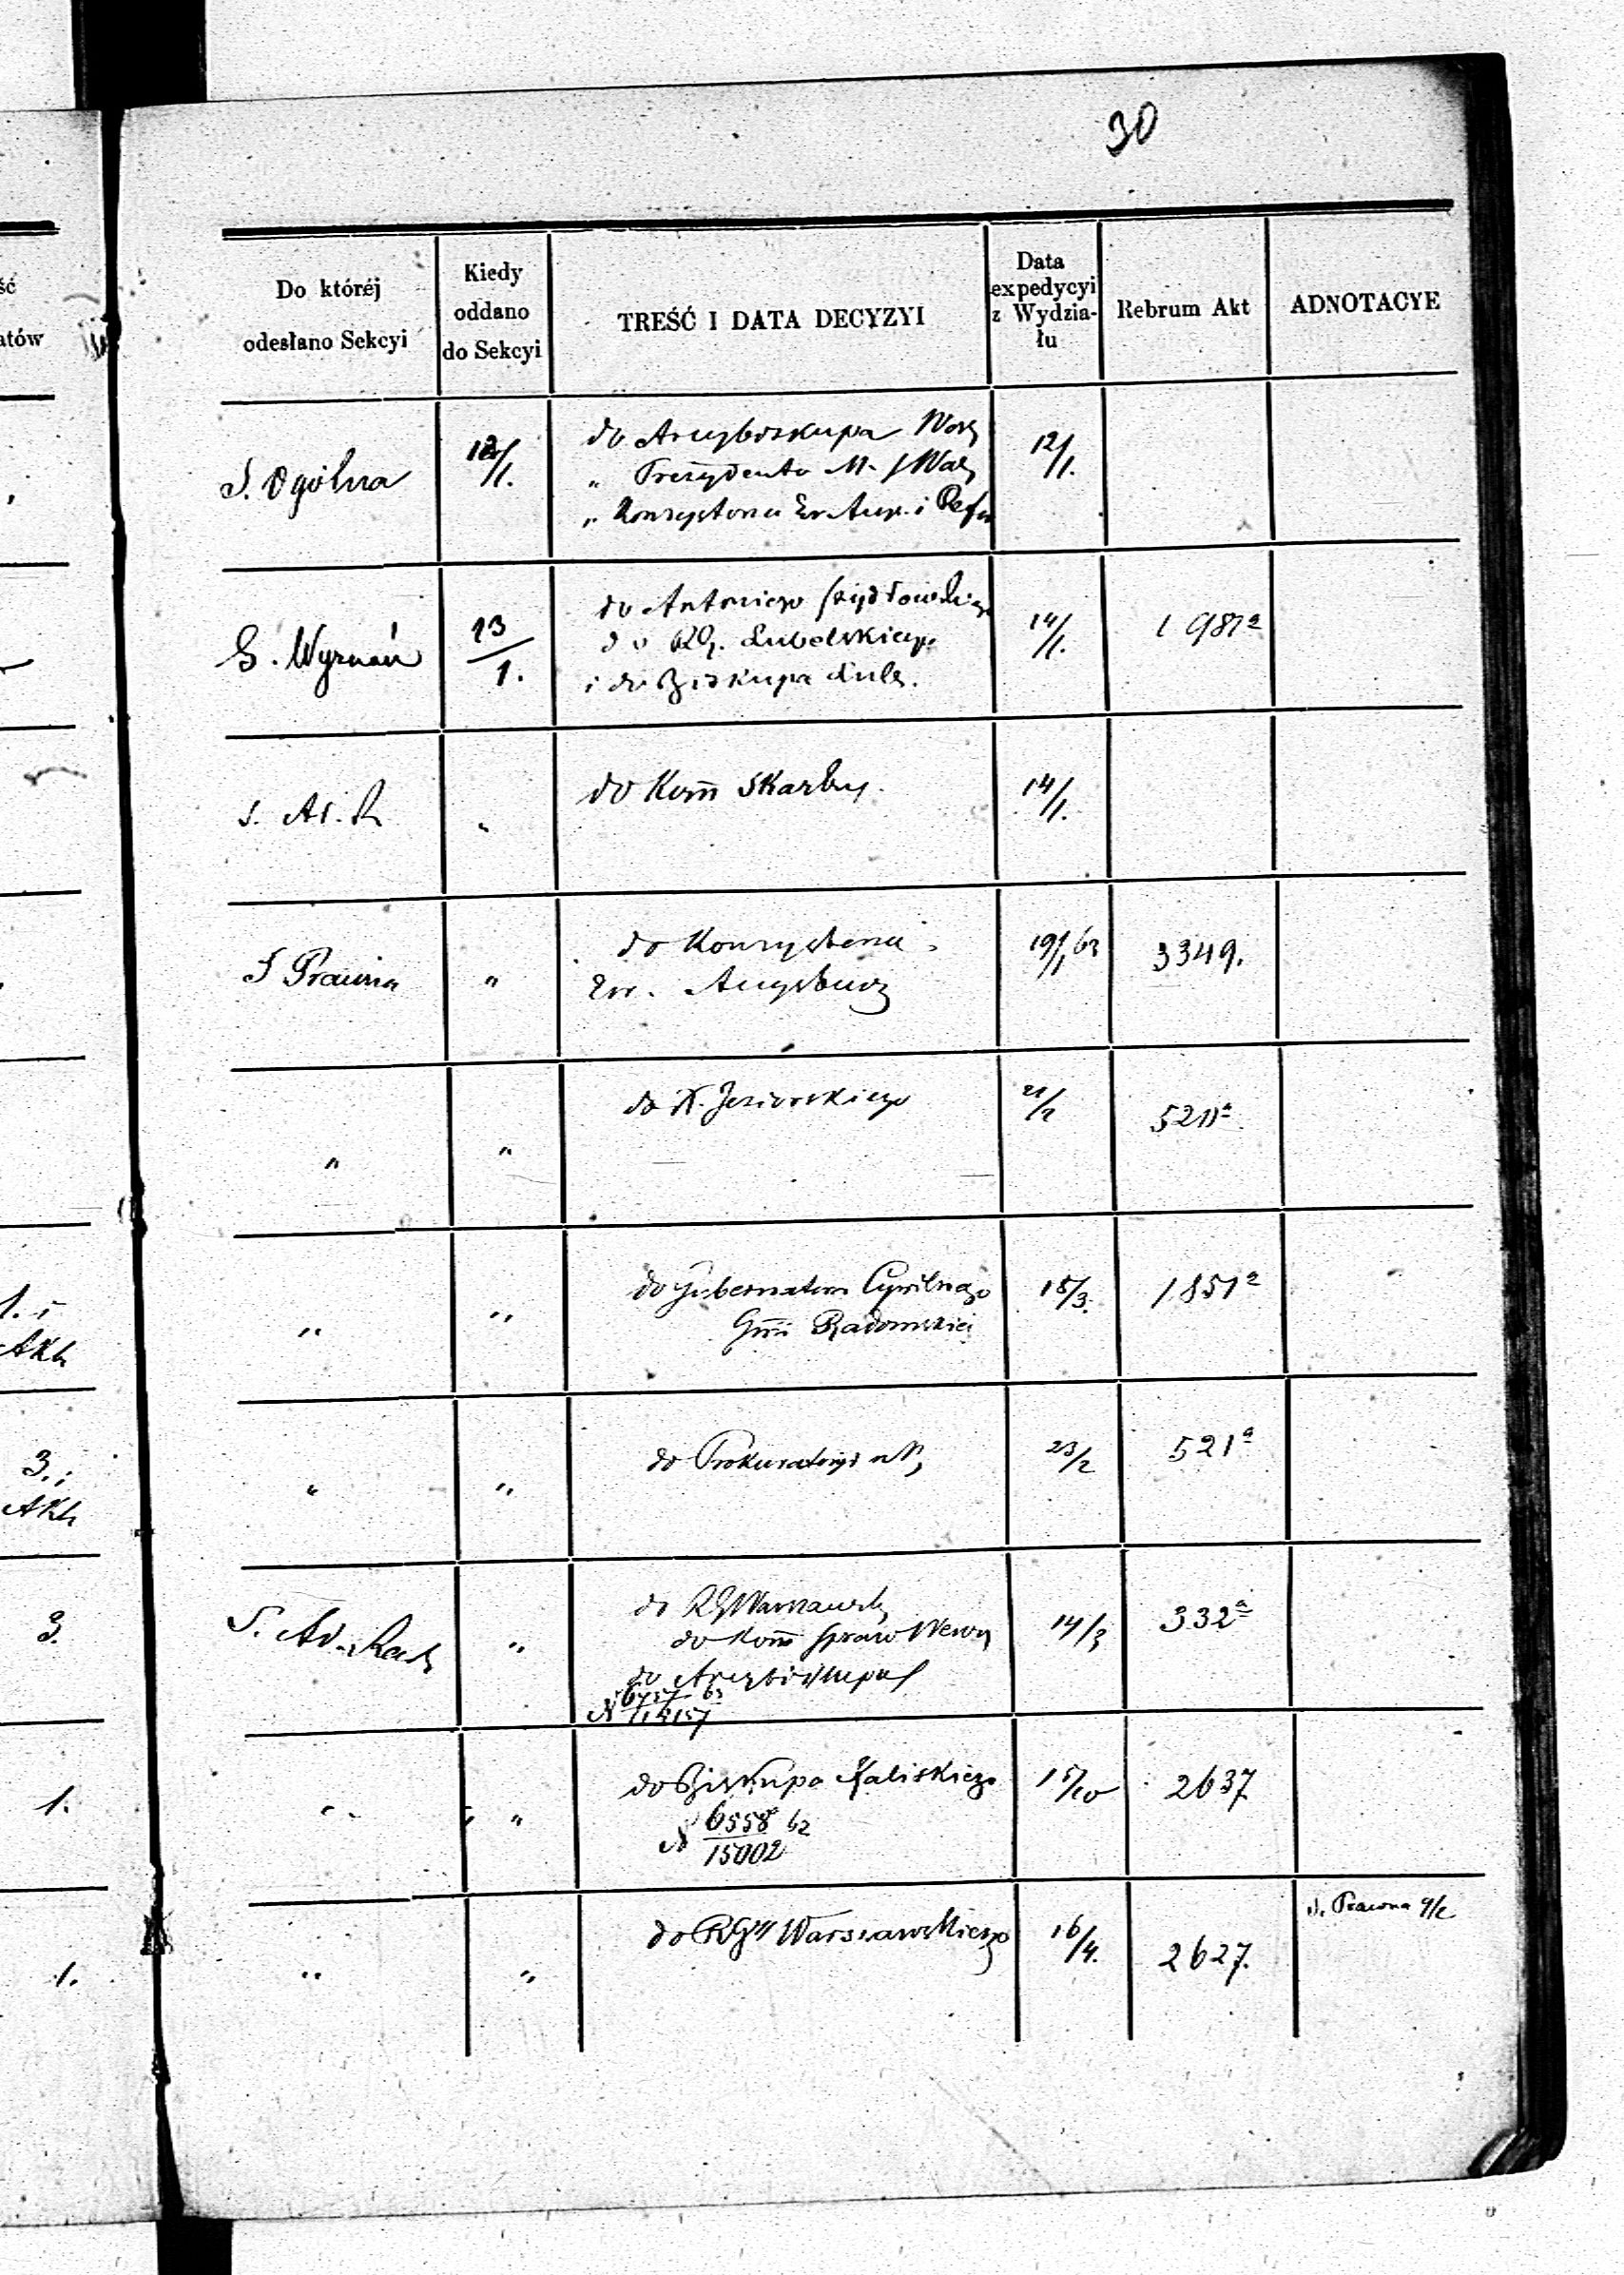 30
ść
atów
Do któréj
odesłano Sekcyi
Kiedy
oddano
do Sekcyi
TREŚĆ I DATA DECYZYI
Data
expedycyi
z Wydzia-
łu
Rebrum Akt
ADNOTACYE
S. Ogólna
12/1.
do Arcybiskupa
" Prezydenta M.
" Konsystorza Ew. Aug. i Ref
12/1.
S. Wyznań
13/1.
do Antoniego
do RG. Lubelskiego
i do Biskupa Lubs.
14/1.
S. Ad. R
"
do Kom Skarbu.
14/1.
S Prawna
"
do Konsystorza
Ew. Augsburg
19/1 63
3349.
"
"
do X. Jeziorskiego
21/2
"
"
do Gubernatora Cywilnego
Gnii Radomskiej
18/3.
1851a
"
"
do Prokuratoryi
23/2
521a
S. Ad. Rach
"
do RG Warszawsk
do Kom Spraw Wewn
do Arcybiskupa
14/3
332a
" "
do Biskupa Kaliskiego
N 6558 62
15002
15/10
2637
"
"
do RG Warszawskiego
16/4.
2627.
Prawna
1. i
Akh
3. i
Akh
3.
1.
1.